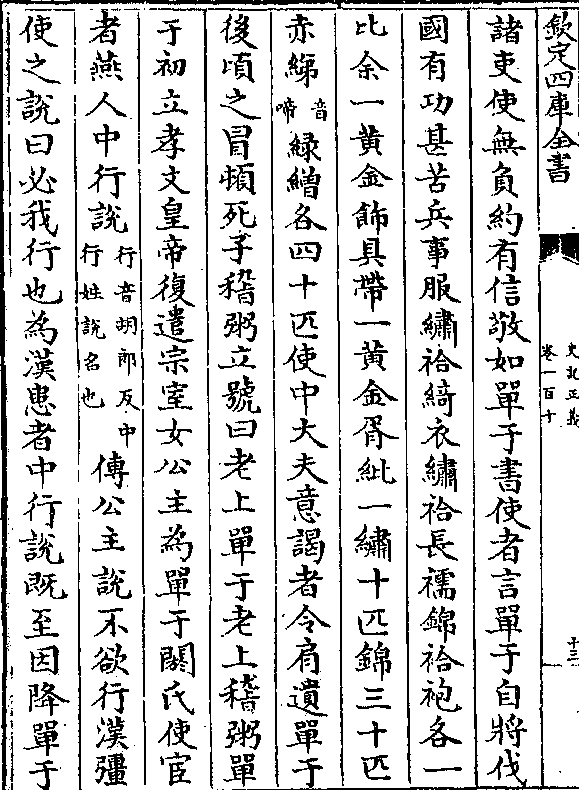 欽定四庫全書
史記正義
卷一百十
十三
諸吏使無負約有信敬如單于書使者言單于自將伐
國有功甚苦兵事服繡袷綺衣繡袷長襦錦袷袍各一
比余一黄金飾具帶一黄金胥紕一繡十匹錦三十匹
赤綈音啼緑繒各四十匹使中大夫意謁者令肩遺單于
後頃之冒頓死子稽粥立號曰老上單于老上稽粥單
于初立孝文皇帝復遣宗室女公主為單于閼氏使宦
者燕人中行說行音胡郎反中行姓說名也傅公主說不欲行漢彊
使之說曰必我行也為漢患者中行說既至因降單于